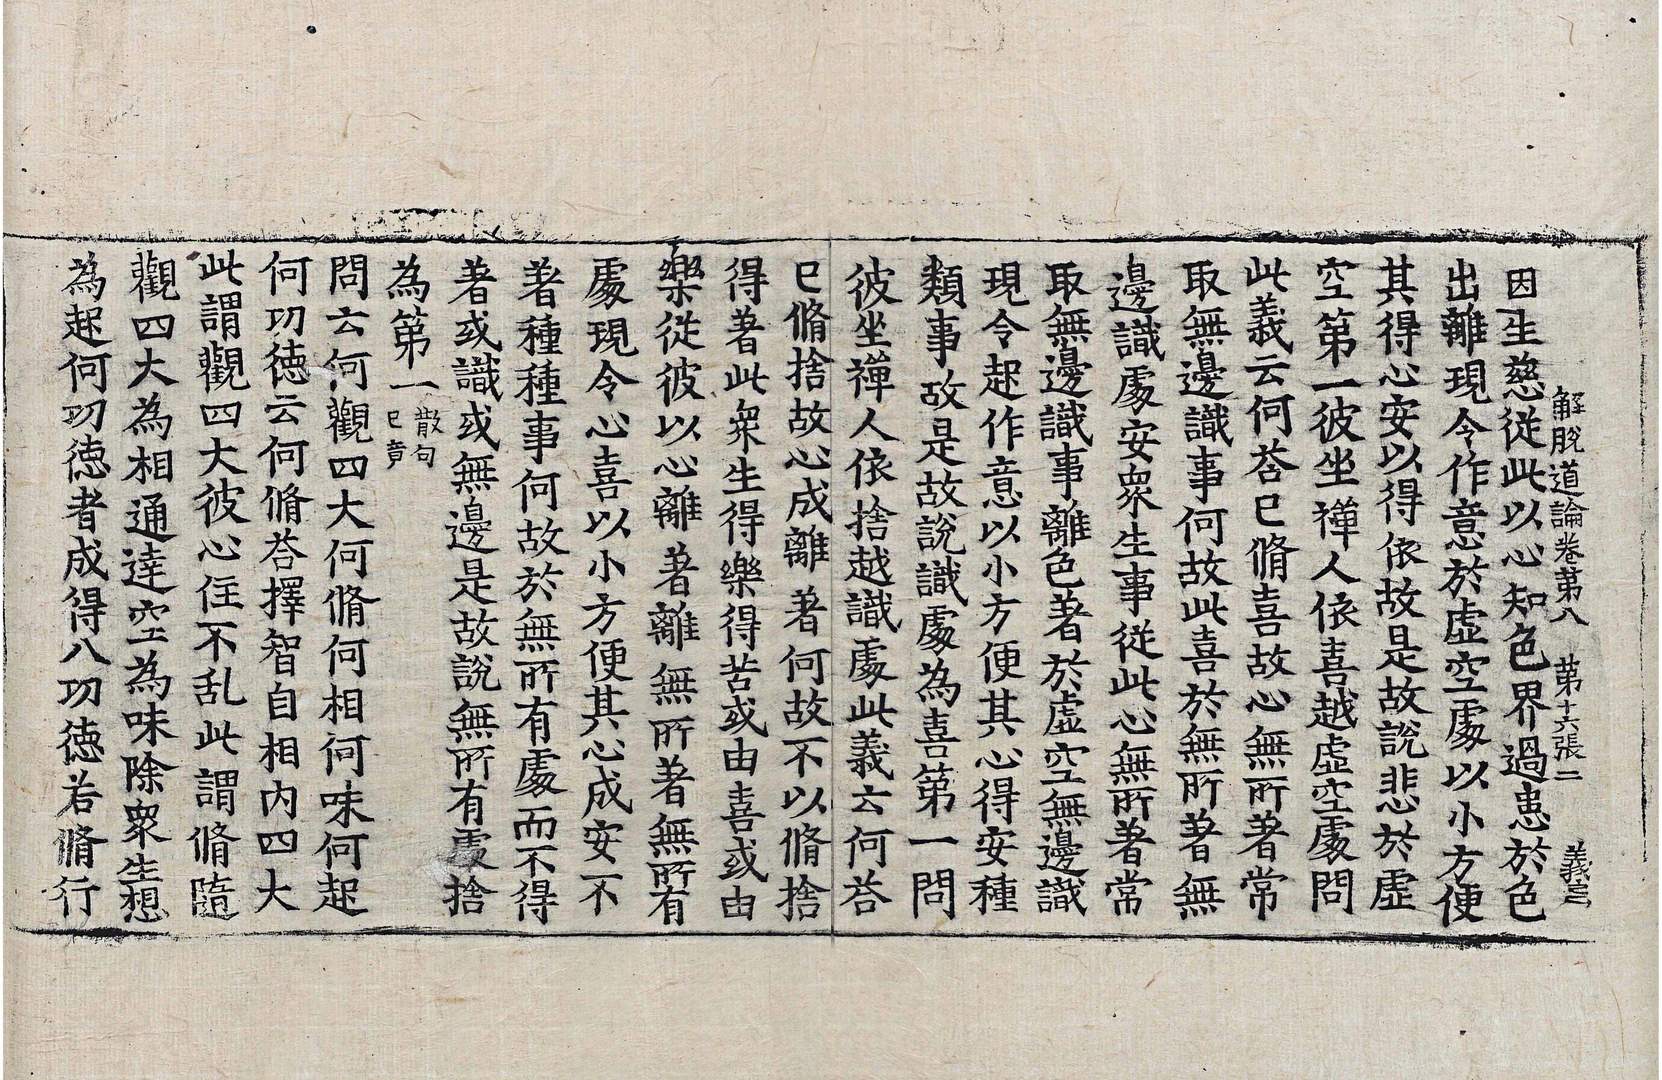 解脫道論卷第八　第十六張二　義
因生慈從此以心知色界過患於色
出離現令作意於虛空處以小方便
其得心安以得依故是故說悲於虛
空第一彼坐禪人依喜越虛空處問
此義云何荅巳脩喜故心無所著常
取無邊識事何故此喜於無所著無
邊識處安衆生事從此心無所著常
取無邊識事離色著於虛空無邊識
現令起作意以小方便其心得安種
類事故是故說識處為喜第一問
彼坐禪人依捨越識處此義云何荅
巳脩捨故心成離著何故不以脩捨
得著此衆生得樂得苦或由喜或由
樂從彼以心離著離無所著無所有
處現令心喜以小方便其心成安不
著種種事何故於無所有處而不得
著或識或無邊是故說無所有處捨
為第一散句巳竟
問云何觀四大何脩何相何味何起
何功徳云何脩荅擇智自相內四大
此謂觀四大彼心住不乱此謂脩隨
觀四大為相通達空為味除衆生想
為起何功徳者成得八功徳若脩行